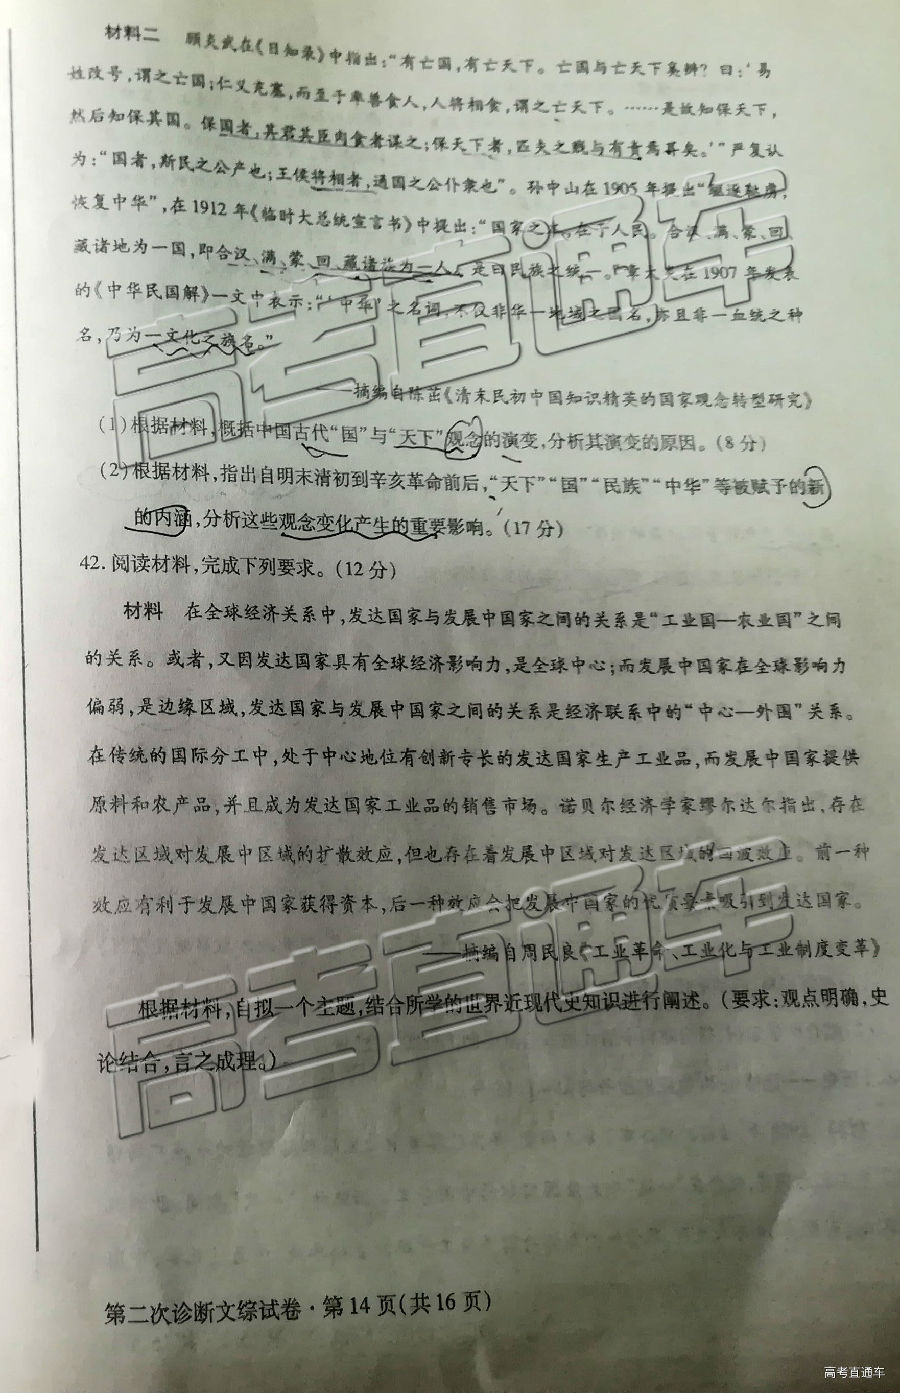 材料二 顾炎武在《日知录》中指出:“有亡国,有亡天下。亡国与亡天下奚辨?曰:‘易
姓改号,谓之亡国;仁义充塞,而至于率兽食人,人将相食,谓之亡天下。……是故知保天下,
然后知保其国。保国者,其君其臣肉食者谋之;保天下者,匹夫之贱与有责焉耳矣。’”严复认
为:“国者,斯民之公产也;王侯将相者,通国之公仆隶也”。孙中山在1905年提出“驱逐鞑虏,
恢复中华”,在1912年《临时大总统宣言书》中提出:“国家之本,在于人民。合汉、满、蒙、回、
藏诸地为一国,即合汉、满、蒙、回、藏诸族为一人。是曰民族之统一。”章太炎在1907年发表
的《中华民国解》一文中表示:“‘中华’之名词,不仅非华一地域之国名,亦且非一血统之种
名,乃为一文化之族名。”
——摘编自陈茁《清末民初中国知识精英的国家观念转型研究》
(1)根据材料,概括中国古代“国”与“天下”观念的演变,分析其演变的原因。(8分)
(2)根据材料,指出自明末清初到辛亥革命前后,“天下”“国”“民族”“中华”等被赋予的新
的内涵,分析这些观念变化产生的重要影响。(17分)
42.阅读材料,完成下列要求。(12分)
材料 在全球经济关系中,发达国家与发展中国家之间的关系是“工业国—农业国”之间
的关系。或者,又因发达国家具有全球经济影响力,是全球中心;而发展中国家在全球影响力
偏弱,是边缘区域,发达国家与发展中国家之间的关系是经济联系中的“中心—外国”关系。
在传统的国际分工中,处于中心地位有创新专长的发达国家生产工业品,而发展中国家提供
原料和农产品,并且成为发达国家工业品的销售市场。诺贝尔经济学家缪尔达尔指出,存在
发达区域对发展中区域的扩散效应,但也存在着发展中区域对发达区域的回波效应。前一种
效应有利于发展中国家获得资本,后一种效应会把发展中国家的优质要素吸引到发达国家。
——摘编自周民良《工业革命、工业化与工业制度变革》
根据材料,自拟一个主题,结合所学的世界近现代史知识进行阐述。(要求:观点明确,史
论结合,言之成理。)
高考直通车
高考直通车
第二次诊断文综试卷·第14页(共16页)
高考直通车